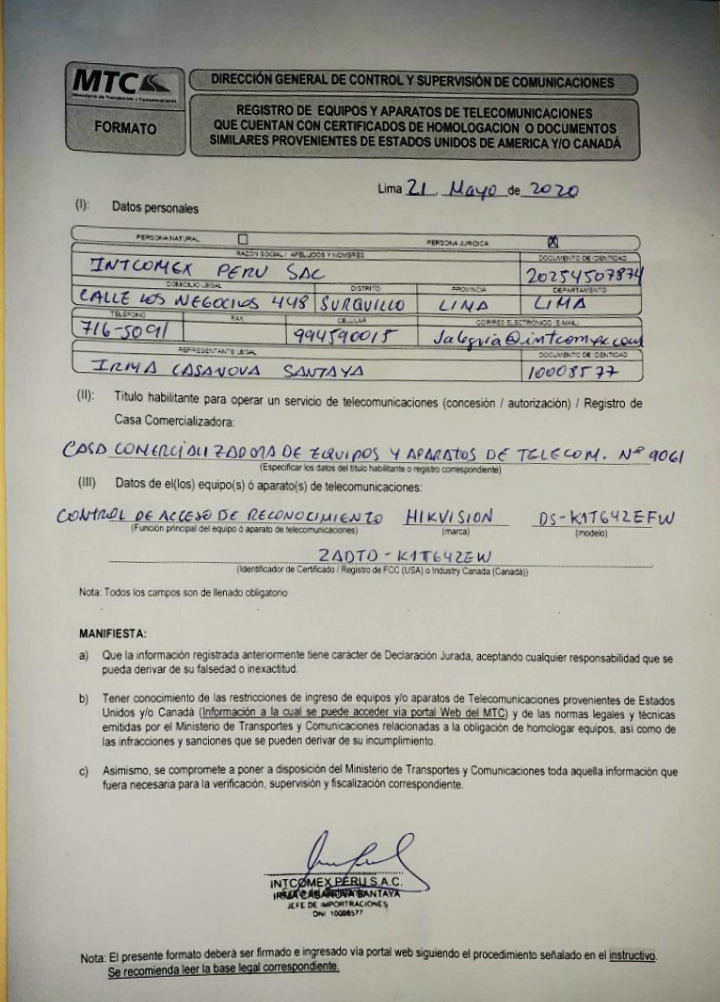 MTC
Ministerio de Transportes y Comunicaciones
FORMATO
DIRECCIÓN GENERAL DE CONTROL Y SUPERVISIÓN DE COMUNICACIONES
REGISTRO DE EQUIPOS Y APARATOS DE TELECOMUNICACIONES
QUE CUENTAN CON CERTIFICADOS DE HOMOLOGACION O DOCUMENTOS
SIMILARES PROVENIENTES DE ESTADOS UNIDOS DE AMERICA Y/O CANADÁ
Lima 21 Mayo de 2020
(I): Datos personales
PERSONA NATURAL PERSONA JURIDICA X
RAZÓN SOCIAL / APELLIDOS Y NOMBRES DOCUMENTO DE IDENTIDAD
INTCOMEX PERU SAC 20254507874
DOMICILIO LEGAL DISTRITO PROVINCIA DEPARTAMENTO
CALLE LOS NEGOCIOS 448 SURQUILLO LIMA LIMA
TELÉFONO FAX CELULAR CORREO ELECTRÓNICO (E-MAIL)
716-5091 994590015 Jalegria@intcomex.com
REPRESENTANTE LEGAL DOCUMENTO DE IDENTIDAD
IRMA CASANOVA SANTAYA 10008577
(II): Título habilitante para operar un servicio de telecomunicaciones (concesión / autorización) / Registro de
Casa Comercializadora:
CASA COMERCIALIZADORA DE EQUIPOS Y APARATOS DE TELECOM. Nº 9061
(Especificar los datos del título habilitante o registro correspondiente)
(III) Datos de el(los) equipo(s) ó aparato(s) de telecomunicaciones:
CONTROL DE ACCESO DE RECONOCIMIENTO HIKVISION DS-K1T642EFW
(Función principal del equipo ó aparato de telecomunicaciones) (marca) (modelo)
2ADTD-K1T642EW
(Identificador de Certificado / Registro de FCC (USA) o Industry Canada (Canadá))
Nota: Todos los campos son de llenado obligatorio
MANIFIESTA:
a) Que la información registrada anteriormente tiene carácter de Declaración Jurada, aceptando cualquier responsabilidad que se
pueda derivar de su falsedad o inexactitud.
b) Tener conocimiento de las restricciones de ingreso de equipos y/o aparatos de Telecomunicaciones provenientes de Estados
Unidos y/o Canadá (Información a la cual se puede acceder vía portal Web del MTC) y de las normas legales y técnicas
emitidas por el Ministerio de Transportes y Comunicaciones relacionadas a la obligación de homologar equipos, así como de
las infracciones y sanciones que se pueden derivar de su incumplimiento.
c) Asimismo, se compromete a poner a disposición del Ministerio de Transportes y Comunicaciones toda aquella información que
fuera necesaria para la verificación, supervisión y fiscalización correspondiente.
INTCOMEX PERU S.A.C.
IRMA CASANOVA SANTAYA
JEFE DE IMPORTRACIONES
DNI 10008577
Nota: El presente formato deberá ser firmado e ingresado vía portal web siguiendo el procedimiento señalado en el instructivo.
Se recomienda leer la base legal correspondiente.